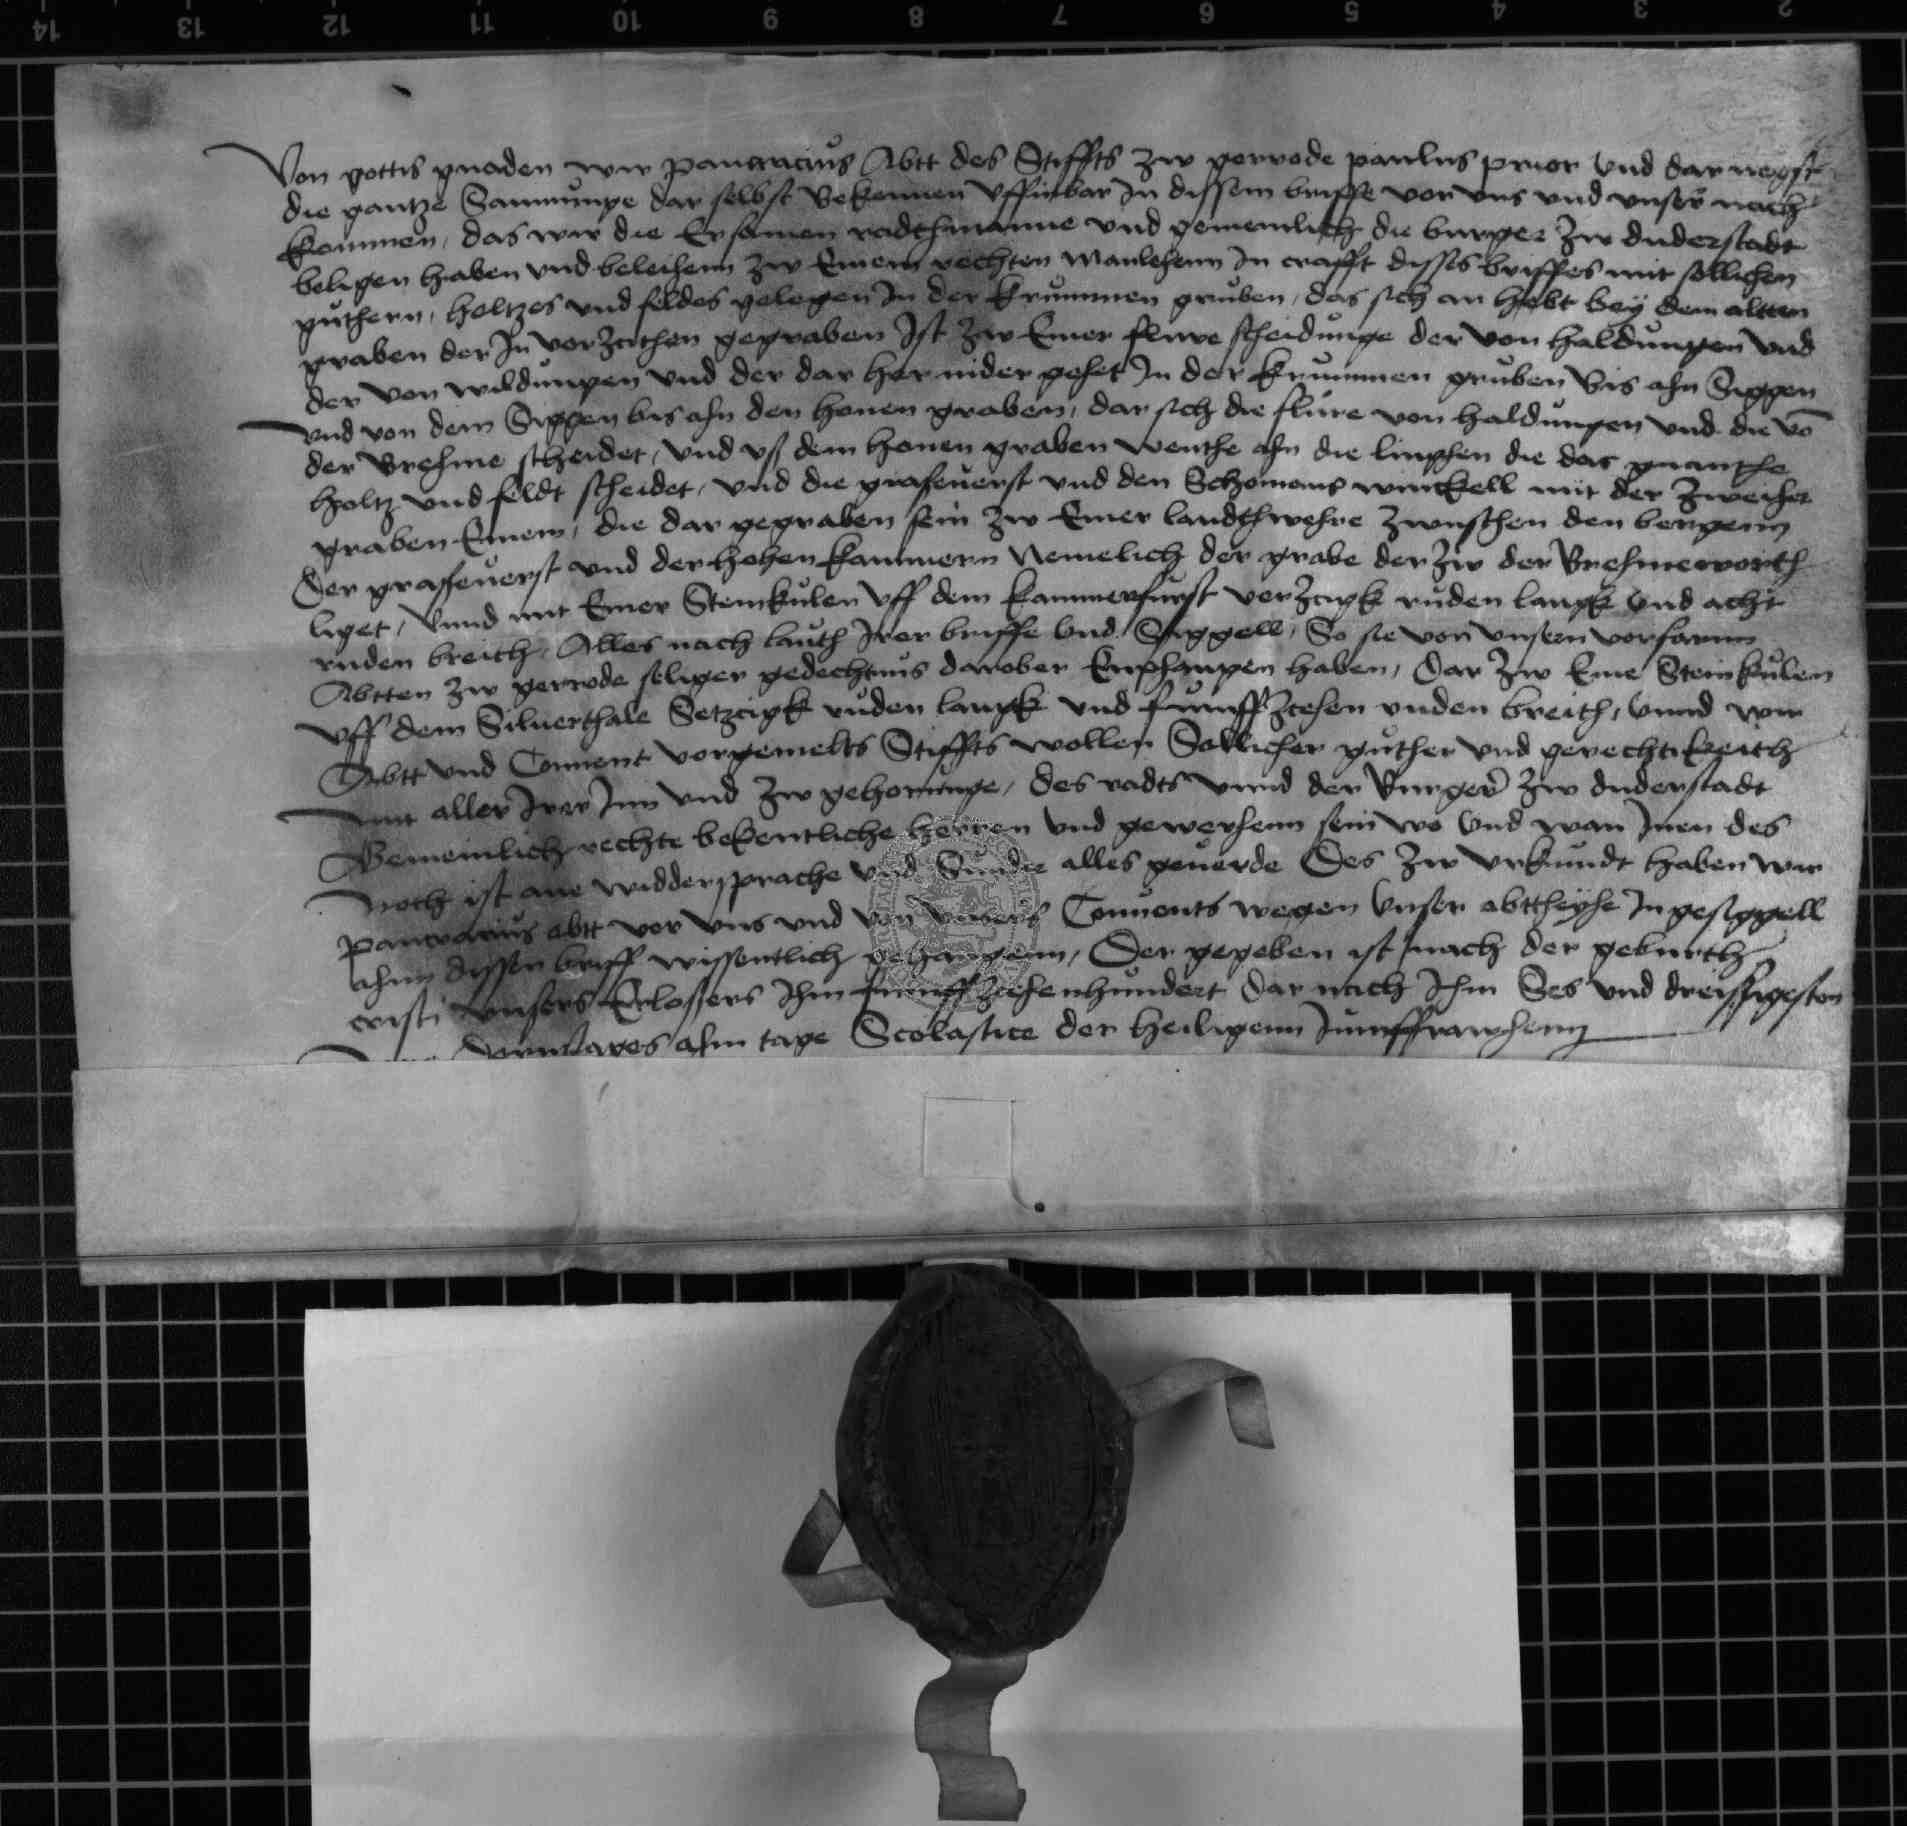 14 13 12 11 10 9 8 7 6 5 4 3 2
Von gottis gnaden wir Pancracius Abtt des Stiffts zw gerrode paulus prior vnd dar negst
die gantze Sammunge dar selbst Bekennen Uffinbar In dissem briffe vor vns vnd vnser nach
kommen, das wir die Ersamen radthmanne vnd gemeinlich die burger zw duderstadt
beligen haben vnd beleihenn zw Einem rechten manlehenn In crafft disses briffes mit sollichen
guthern, holtzes vnd feldes gelegen In der krummen gruben, das sich an hebt bey dem altten
graben der In vorzcithen gegraben Ist zw Einer flure scheidunge der von haldungen vnd
der von wildungen vnd der dar her nider gehet In der krummen gruben bis ahn Siggen
vnd von dem Siggen bis ahn den honen graben, dar sich die flure von haldungen vnd die vo
der Brehme scheidet, vnd uß dem honen graben wenthe ahn die lingken die das gnanthe
holtz vnd feldt scheidet, vnd die graseuerst vnd den Schomans winckell mit der zweiher
graben Einem, die dar gegraben sein zw Einer landthwehre zwuschen den bergenn
Der graseuerst vnd der hohen kammern Nemelich der grabe der zw der Brehmeworth
liget, Vnnd mit Einer Steinkulen vff dem kammerfurst verzcigk ruden langk vnd acht
ruden breith, Alles nach lauth Irer briffe vnd Siggell, So sie von vnsern vorfarnn
Abtten zw gerrode seliger gedechtnus darober Enphangen haben, Dar zw Eine Steinkulen
vff dem Siluerthale Setzcigk ruden langk vnd funffzcehen ruden breith, vnnd wir
Abtt vnd Conuent vorgemelts Stiffts wollen Sollicher guther vnd gerechtikeith
mit aller Irer Inn vnd zw gehorunge, des radts vnnd der Burger zw duderstadt
Gemeinlich rechte bekentliche herren vnd gewerhenn sein wo vnd wan Inen des
noth ist ane widdersprache vnd Sunder alles geuerde Des zw vrkundt haben wir
Pancracius abtt vor vns vnd von vnsers Conuents wegen vnser abttheyhe Ingesiggell
ahnn dissen briff wissentlich gehangenn, Der gegeben ist nach der geburth
cristi vnsers Erlosers Ihm funffzcehenhundert dar nach Ihm Ses vnd dreissigesten
ahm tage Scolastice der heiligenn Junffrawhenn